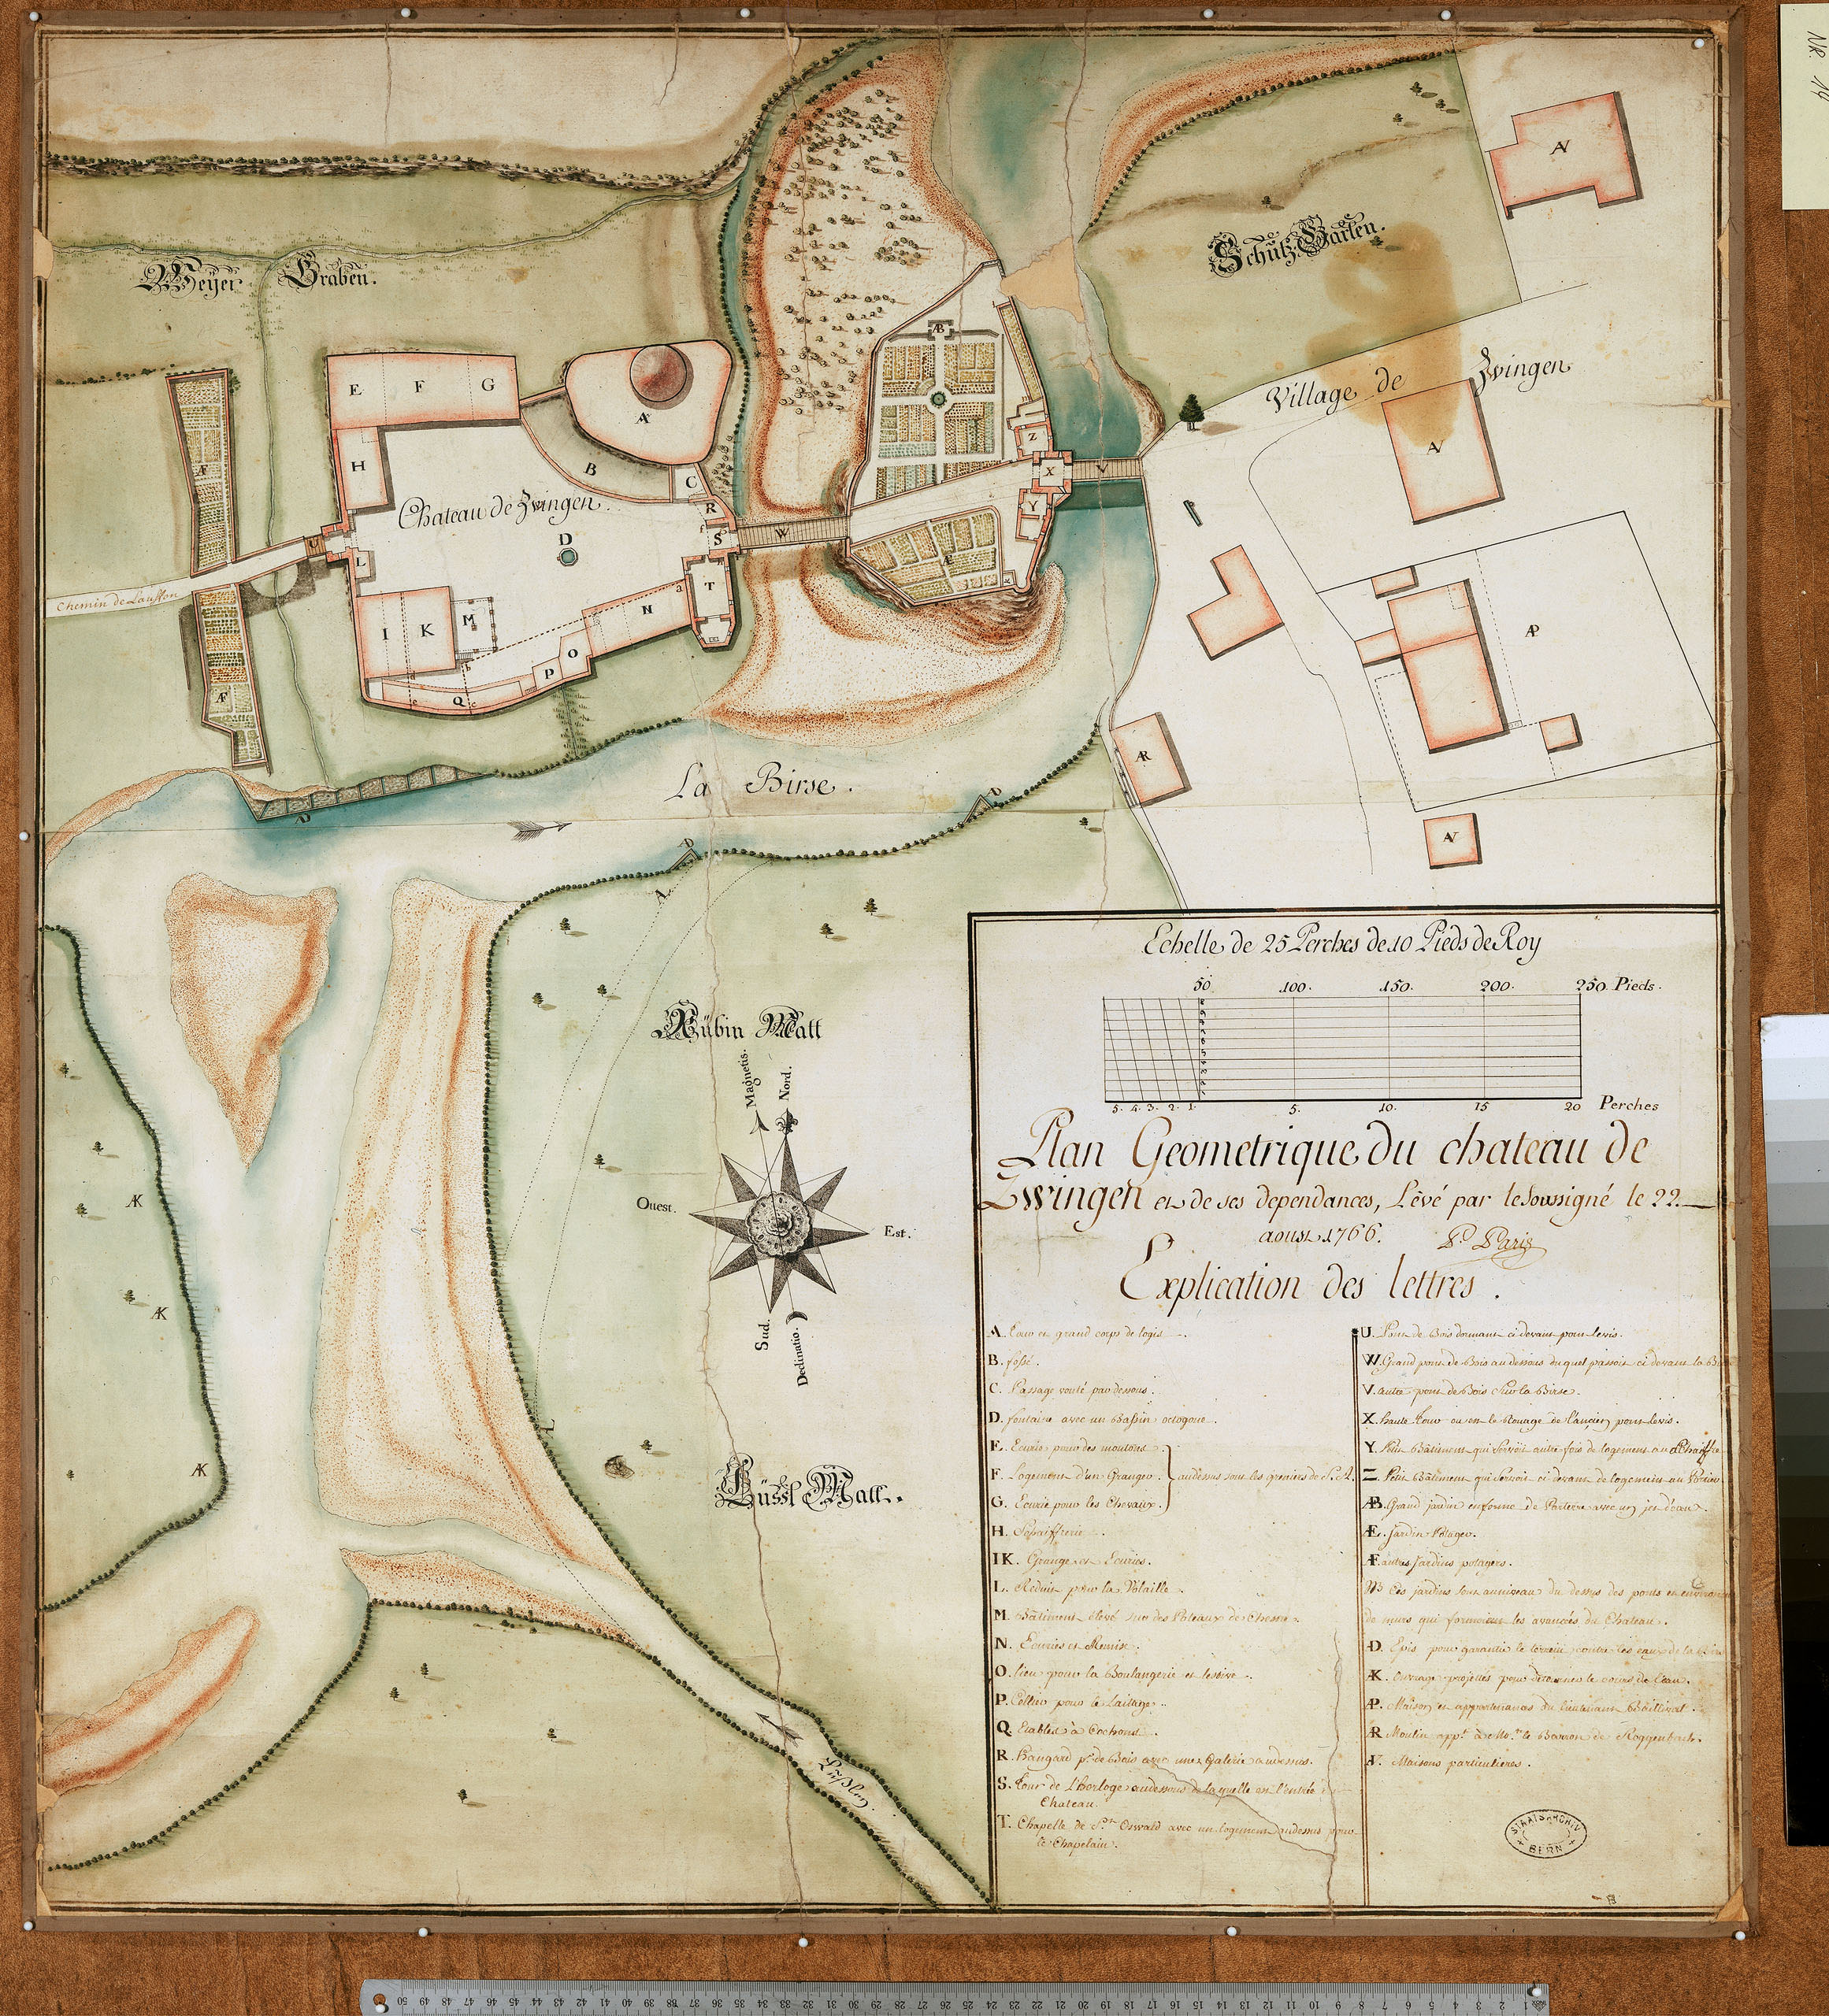 NR. 14
Meyer Graben.
Schütz Garten.
Village de Zwingen
Chateau de Zwingen.
Chemin de Lauffon
A
B
C
D
E F G
H
I K
L
M
N
O
P
Q
R
S
T
U
W
V
X
Y
Z
Æ
Æ
AP
AR
La Birse.
Rübin Matt
Magnetis.
Nord.
Ouest.
Est.
Sud.
Declinatio.
AK
AK
AK
Lüssl Matt.
Lüßlen.
Echelle de 25 Perches de 10 Pieds de Roy
50 .100. .150. 200. 250 Pieds.
5. 4. 3. 2. 1. 5. 10. 15 20 Perches
Plan Geometrique du chateau de
Zwingen et de ses dependances, Lêvé par le Soussigné le 22.
aoust 1766. P. Paris
Explication des lettres.
A. Tour et grand corps de logis.
B. fossé.
C. Passage vouté par dessous.
D. fontaine avec un Bassin octogone.
E. Ecurie pour des moutons.
F. Logement d'un Granger. audessus sont les greniers de S. A.
G. Ecurie pour les Chevaux.
H.
IK. Grange et Ecuries.
L. Reduit pour la Volaille.
M. Bâtiment élevé sur des Poteaux de Chesne.
N. Ecuries et Remise.
O. lieu pour la Boulangerie et lessive.
P. Cellier pour le Laitage.
Q. Etables à Cochons.
R. Hangard pr. de Bois avec une Galerie audessus.
S. Tour de l'horloge audessous de laquelle est l'entrée du
Chateau.
T. Chapelle de St. Oswald avec un logement audessus pour
le Chapelain.
U. Pont de Bois dormant ci devant pont levis.
W. Grand pont de Bois au dessous du quel passoit ci devant la
V. autre pont de Bois Sur la Birse.
X. haute Tour ou est le Rouage de l'ancien pont levis.
Y. Petit Bâtiment qui Servoit autre fois de logement au
Z. Petit Bâtiment qui Servoit ci devant de logement au
Æ. Grand jardin en forme de Parterre avec un jet d'eau.
Æ. jardin Potager.
autres Jardins potagers.
NB Ces jardins sont au niveau du dessus des ponts et
de murs qui formoient les avancés du Chateau.
Epis pour garantir le terrein contre les eaux de la
AK. Ouvrages projettés pour détourner le cours de l'eau.
AP. Maison et appartenances du lieutenant Baillival.
AR. Moulin appt. à Mr. le Barron de Roggenbach.
AV. Maisons particulieres.
STAATSARCHIV
BERN